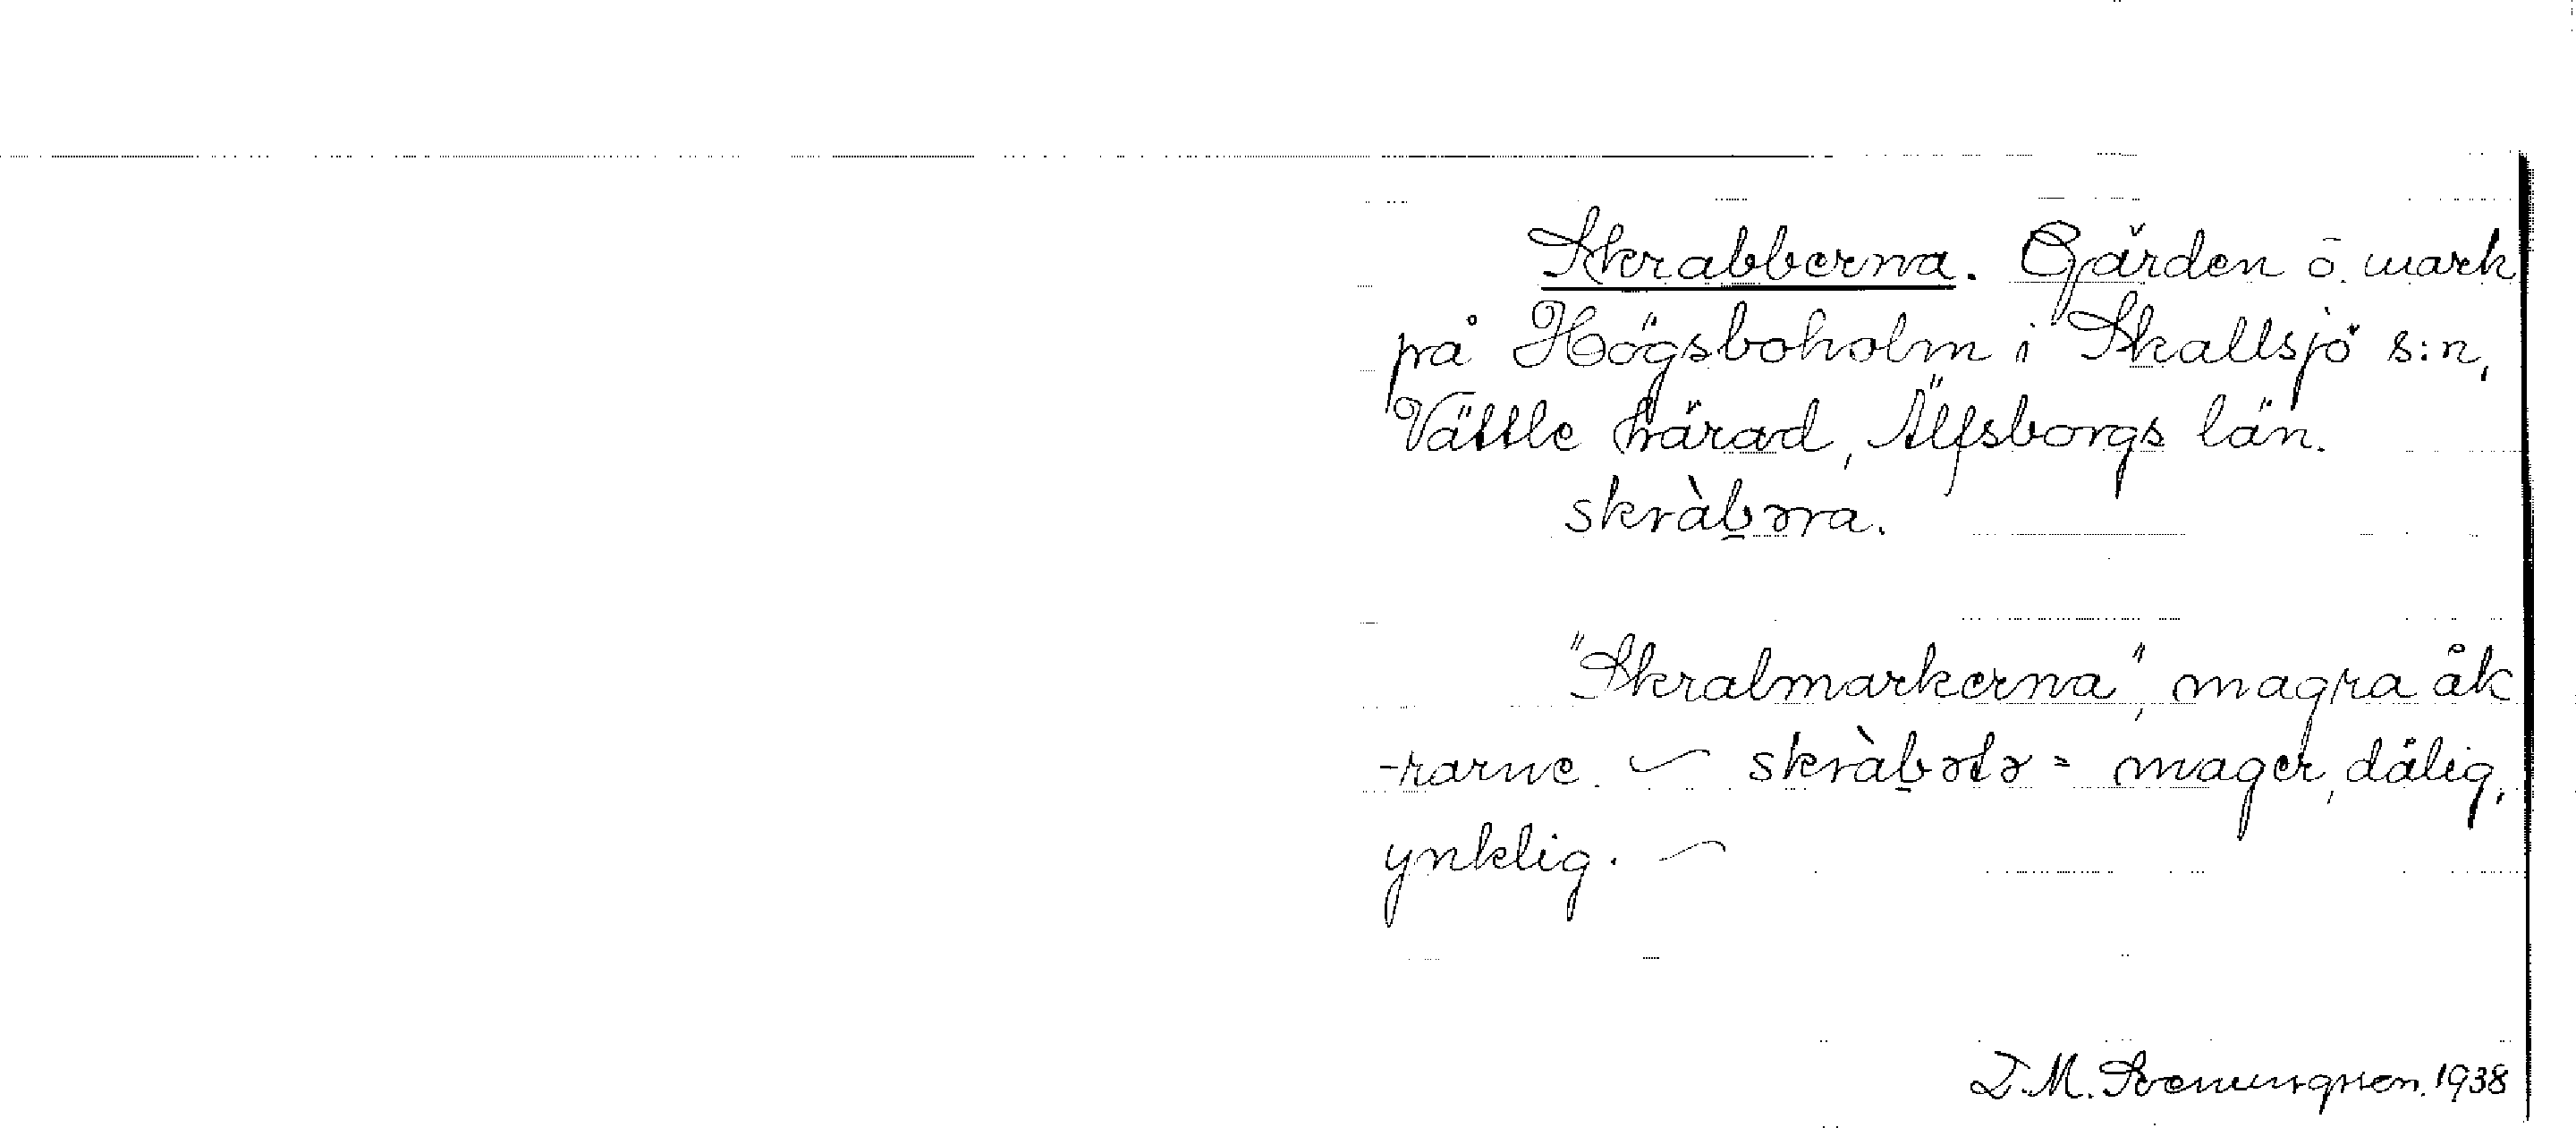 Skrabberna. Gärden ō. mark
på Högsboholm i Skallsjö s:n,
Vättle härad, Älfsborgs län.
skràb̠ərra.
"Skralmarkerna", magra åk
-rarne. ~ skràb̠ətə = mager, dålig,
ynklig. ~
T. M. 1938